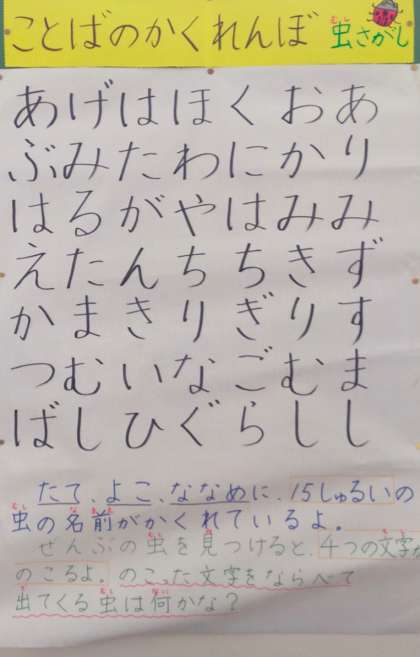 ことばのかくれんぼ 虫さがし
あげはほくおあ
ぶみたわにかり
はるがやはみみ
えたんちちきず
かまきりぎりす
つむいなごむま
ばしひぐらしし
たて、よこ、ななめに、15しゅるいの
虫の名前がかくれているよ。
ぜんぶの虫を見つけると、4つの文字が
のこるよ。のこった文字をならべて
出てくる虫は何かな？